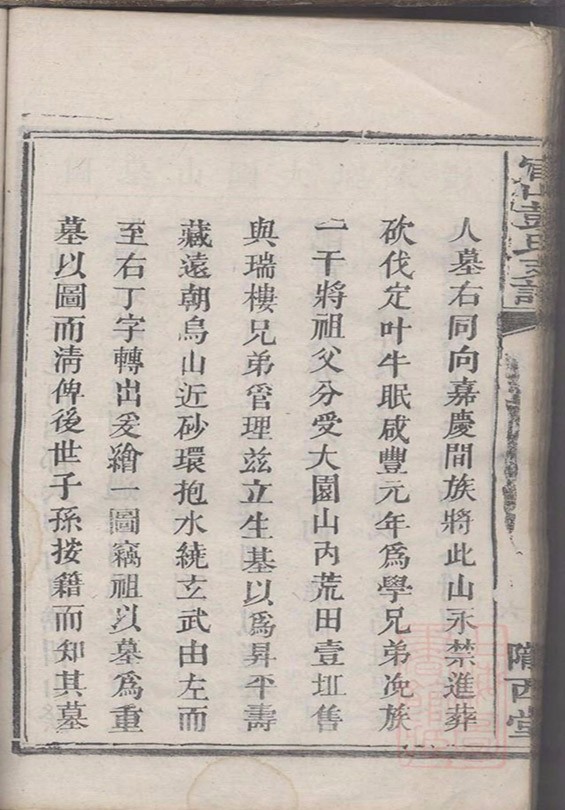 人墓右同向嘉慶間族將此山永禁進葬
砍伐定叶牛眠咸豐元年為學兄弟凂族
一干將祖父分受大園山內荒田壹坵售
與瑞樓兄弟管理茲立生基以為昇平壽
藏遠朝烏山近砂環抱水繞玄武由左而
至右丁字轉出爰繪一圖竊祖以墓為重
墓以圖而清俾後世子孫按籍而知其墓
彭氏支譜
隴西堂